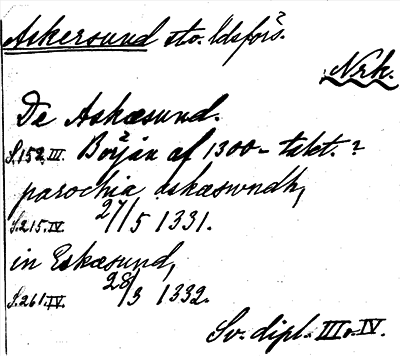 Askersund sto. ldsförs.
Nrk.
De Askæsund.
S.152.III. Början af 1300-talet.?
parochia askæswndh,
S.215.IV. 27/5 1331.
in Eskæsund,
S.261.IV. 28/3 1332.
Sv. dipl. III o. IV.